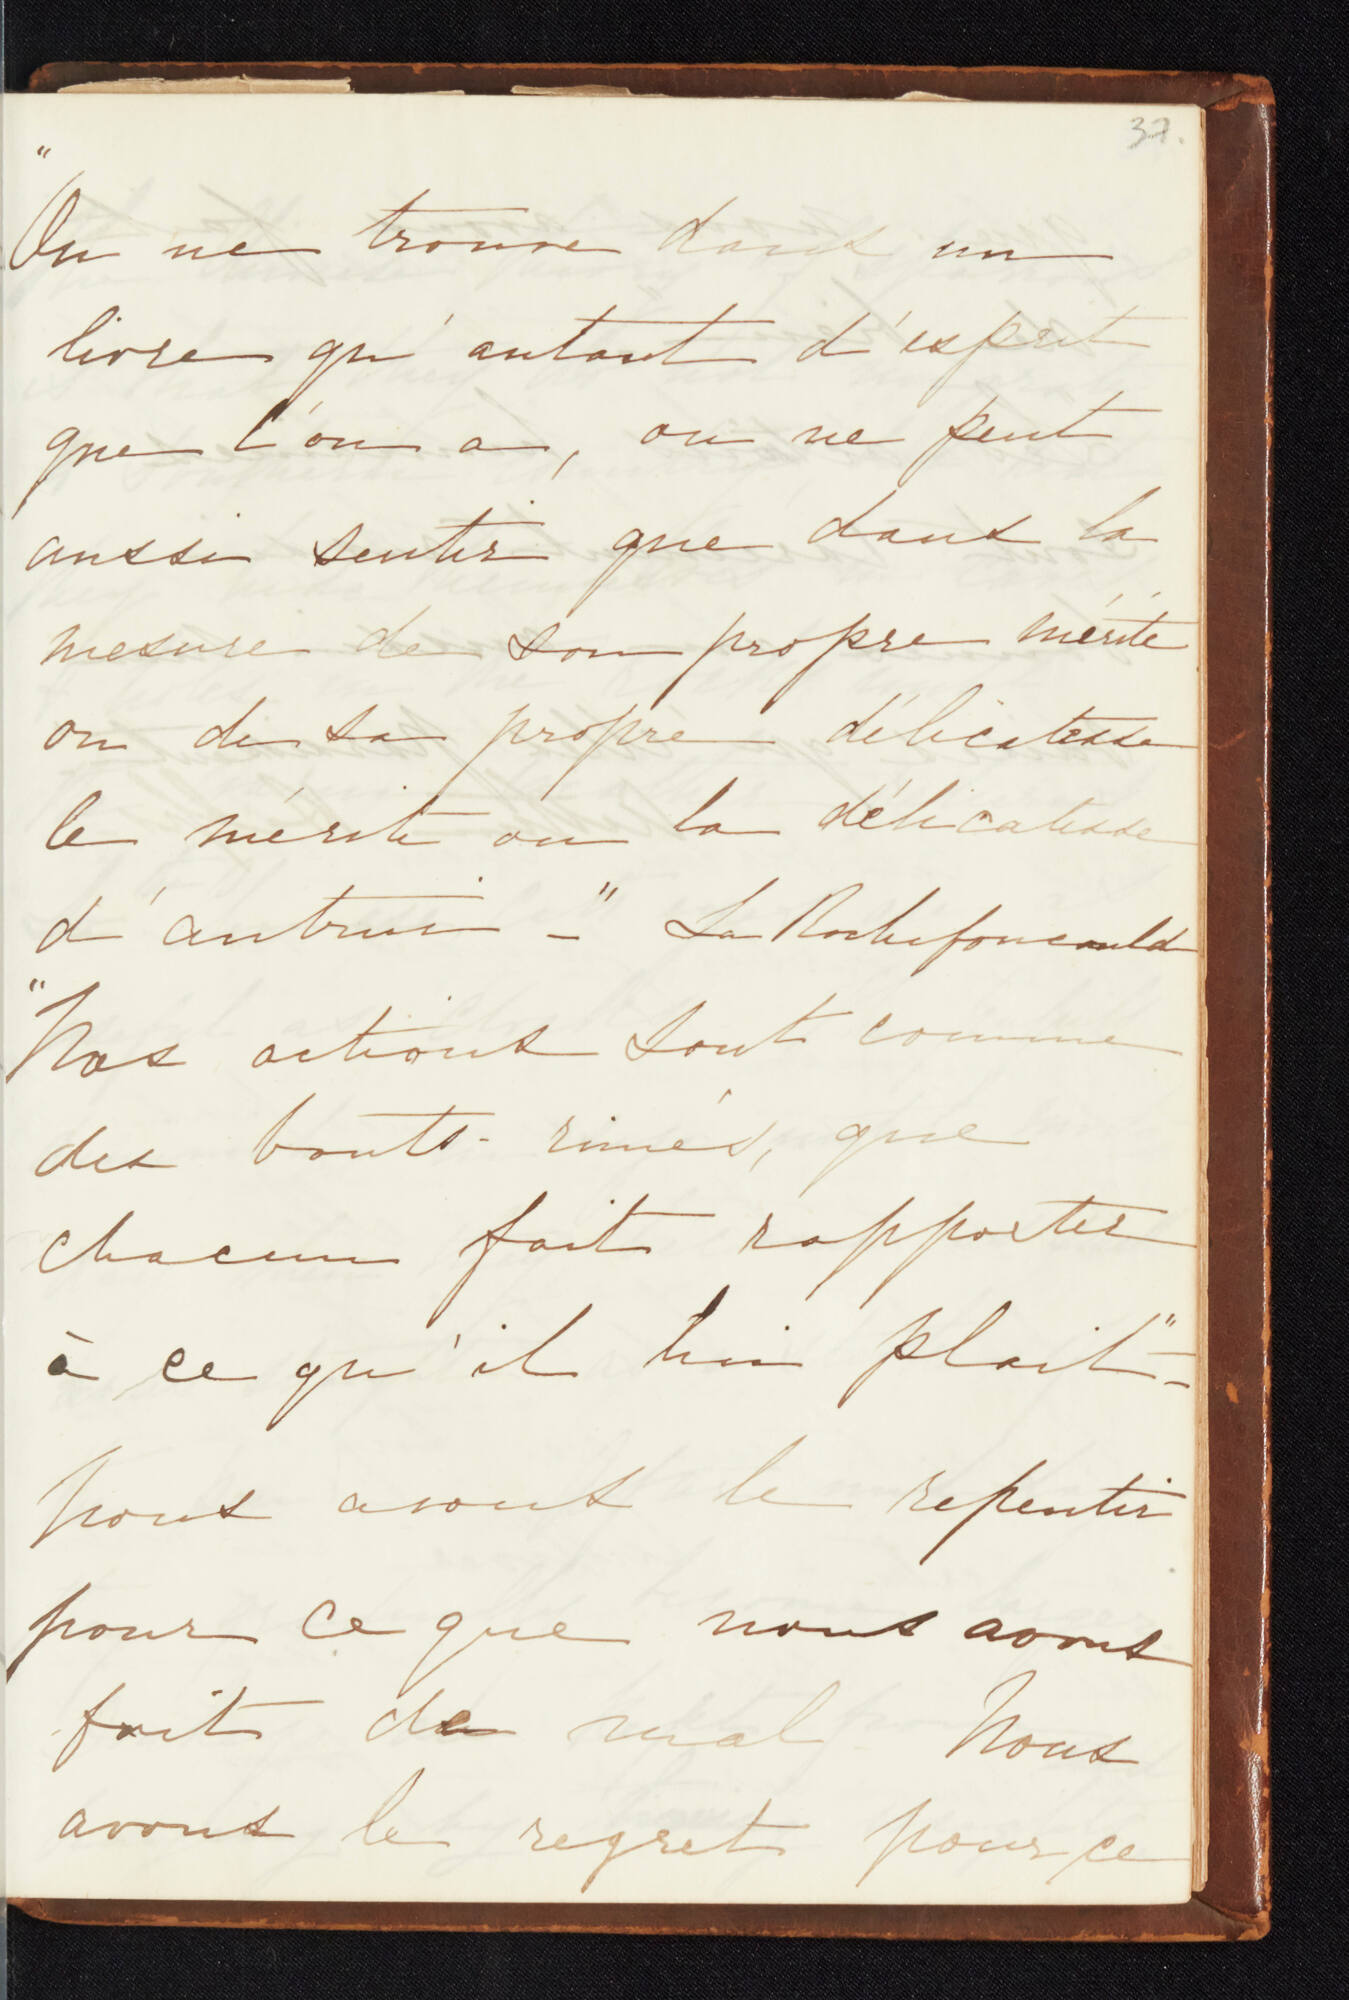 37.
"
On ne trouve dans un
livre qu'autant d'esprit
que l'on a, on ne peut
aussi sentir que dans la
mesure de son propre mérite
ou de sa propre délicatesse
le mérite ou la délicatesse
d'autrui -" La Rochefoucauld
"Nos actions sont comme
des bouts-rimés, que
chacun fait rapporter
à ce qu'il lui plait" -
Nous avons le repentir
pour ce que nous avons
fait de mal - Nous
avons le regret pour ce